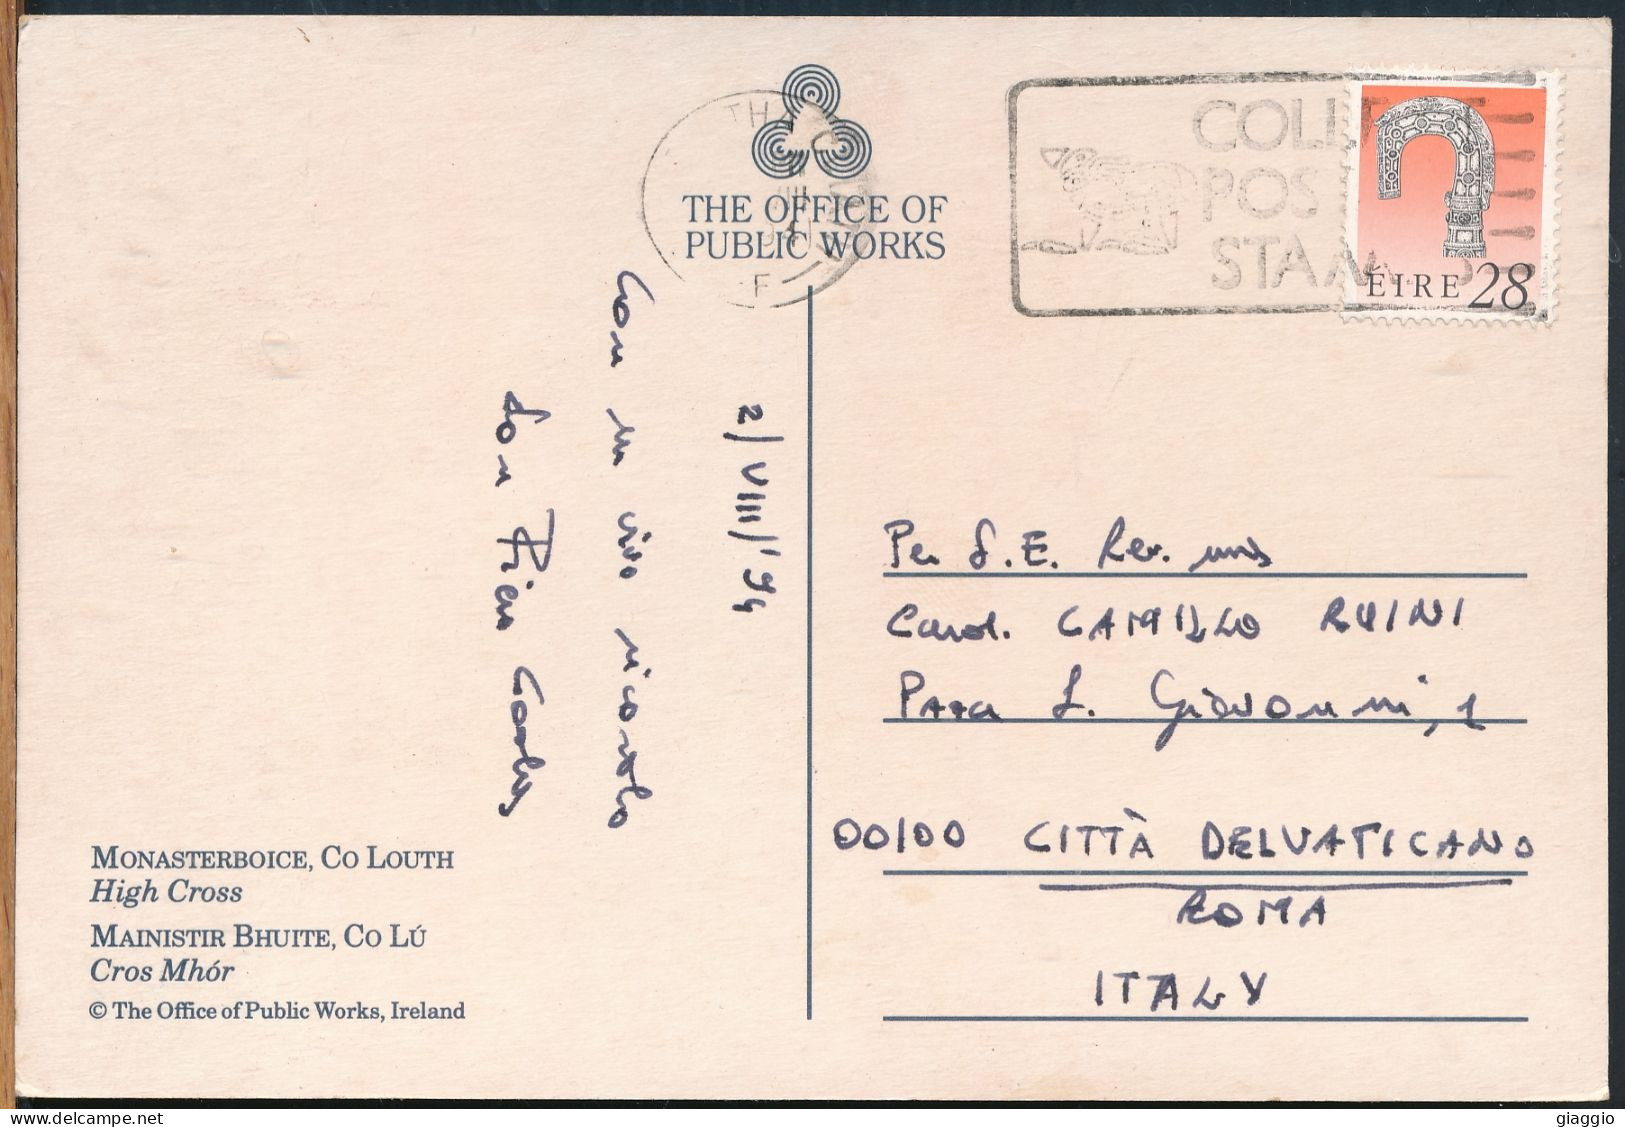 THE OFFICE OF
PUBLIC WORKS
COLL
POS
STAM
ÉIRE 28
2/VIII/'94
Con un vivo ricordo
don Piero
Per S.E. Rev. ma
Card. CAMILLO RUINI
P.zza S. Giovanni, 1
00100 CITTÀ DEL VATICANO
ROMA
ITALY
MONASTERBOICE, CO LOUTH
High Cross
MAINISTIR BHUITE, CO LÚ
Cros Mhór
© The Office of Public Works, Ireland
delcampe.net
giaggio